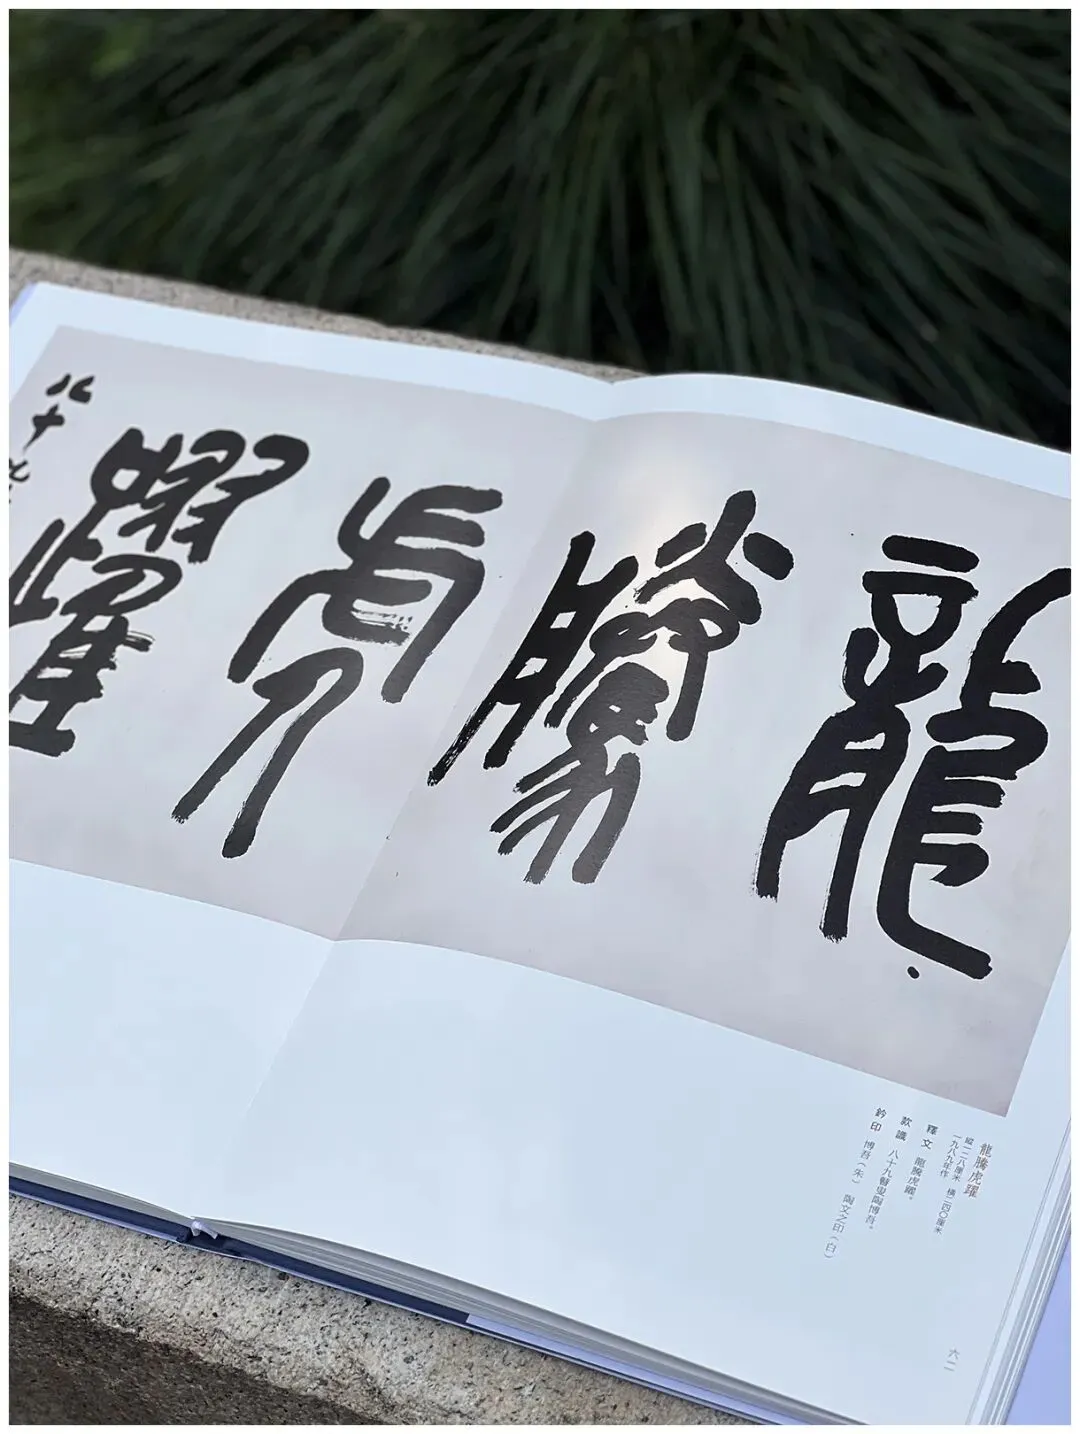 龍騰虎躍
八十九
龍騰虎躍
縱一二八厘米 橫二四〇厘米
一九八九年作
釋文 龍騰虎躍。
款識 八十九瞽叟陶博吾。
鈐印 博吾（朱） 陶文之印（白）
六一